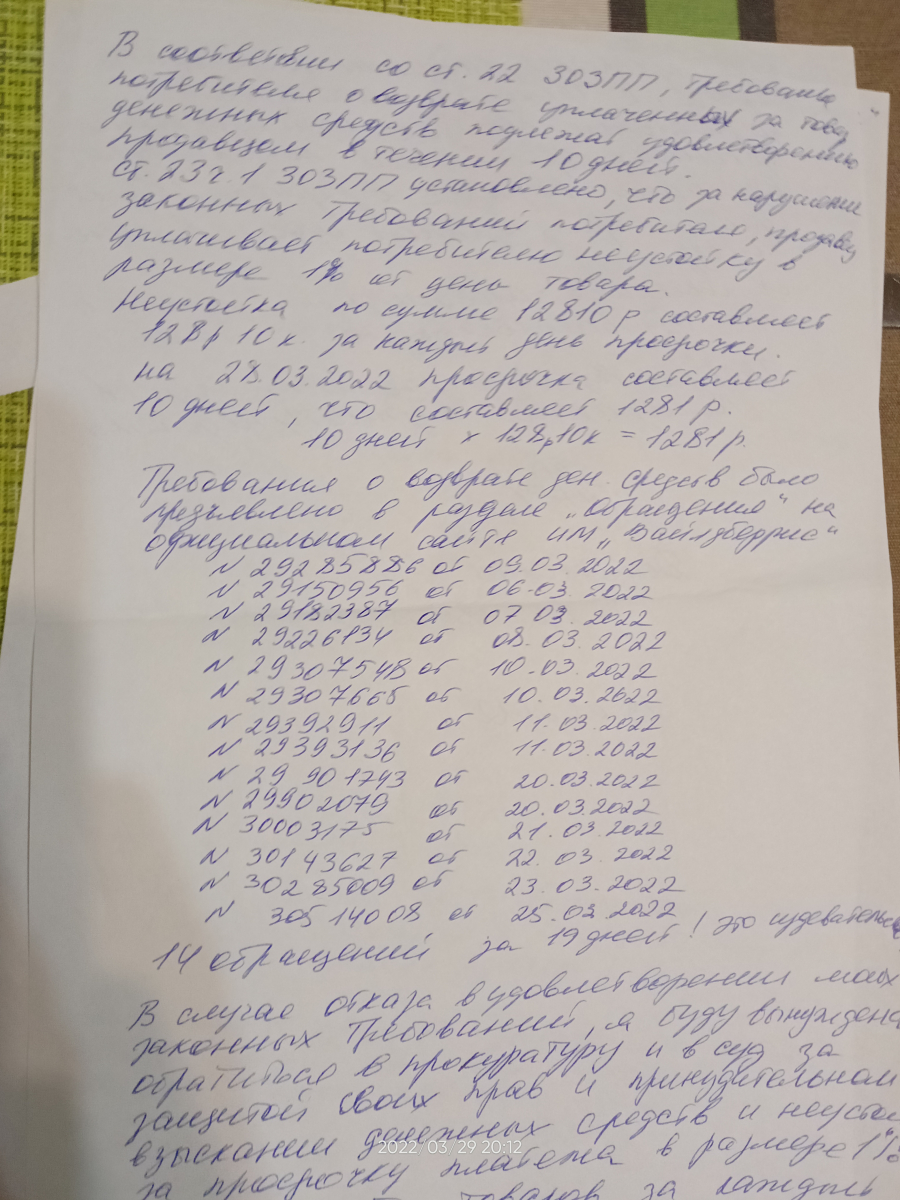 В соответствии со ст. 22 ЗОЗПП, требования
потребителя о возврате уплаченных за товар
денежных средств подлежат удовлетворению
продавцом в течении 10 дней.
Ст. 23 ч. 1 ЗОЗПП установлено, что за нарушение
законных требований потребителю, продавец
уплачивает потребителю неустойку в
размере 1% от цены товара.
Неустойка по сумме 12810 р составляет
128 р 10 к. за каждый день просрочки.
на 28.03.2022 просрочка составляет
10 дней, что составляет 1281 р.
10 дней х 128р10к = 1281 р.
Требования о возврате ден. средств было
предъявлено в разделе „обращения“ на
официальном сайте ИМ „Вайлдберрис“
N 29285886 от 09.03.2022
N 29150956 от 06.03.2022
N 29182387 от 07.03.2022
N 29226134 от 08.03.2022
N 29307548 от 10.03.2022
N 29307665 от 10.03.2022
N 29392911 от 11.03.2022
N 29393136 от 11.03.2022
N 29901743 от 20.03.2022
N 29902079 от 20.03.2022
N 30003175 от 21.03.2022
N 30143627 от 22.03.2022
N 30285009 от 23.03.2022
N 30514008 от 25.03.2022
14 обращений за 19 дней! это издевательс
В случае отказа в удовлетворении моих
законных требований, я буду вынуждена
обратиться в прокуратуру и в суд за
защитой своих прав и принудительном
взыскании денежных средств и неустой
2022/03/29 20:12
за просрочку платежа в размере 1%
товаров за каждый